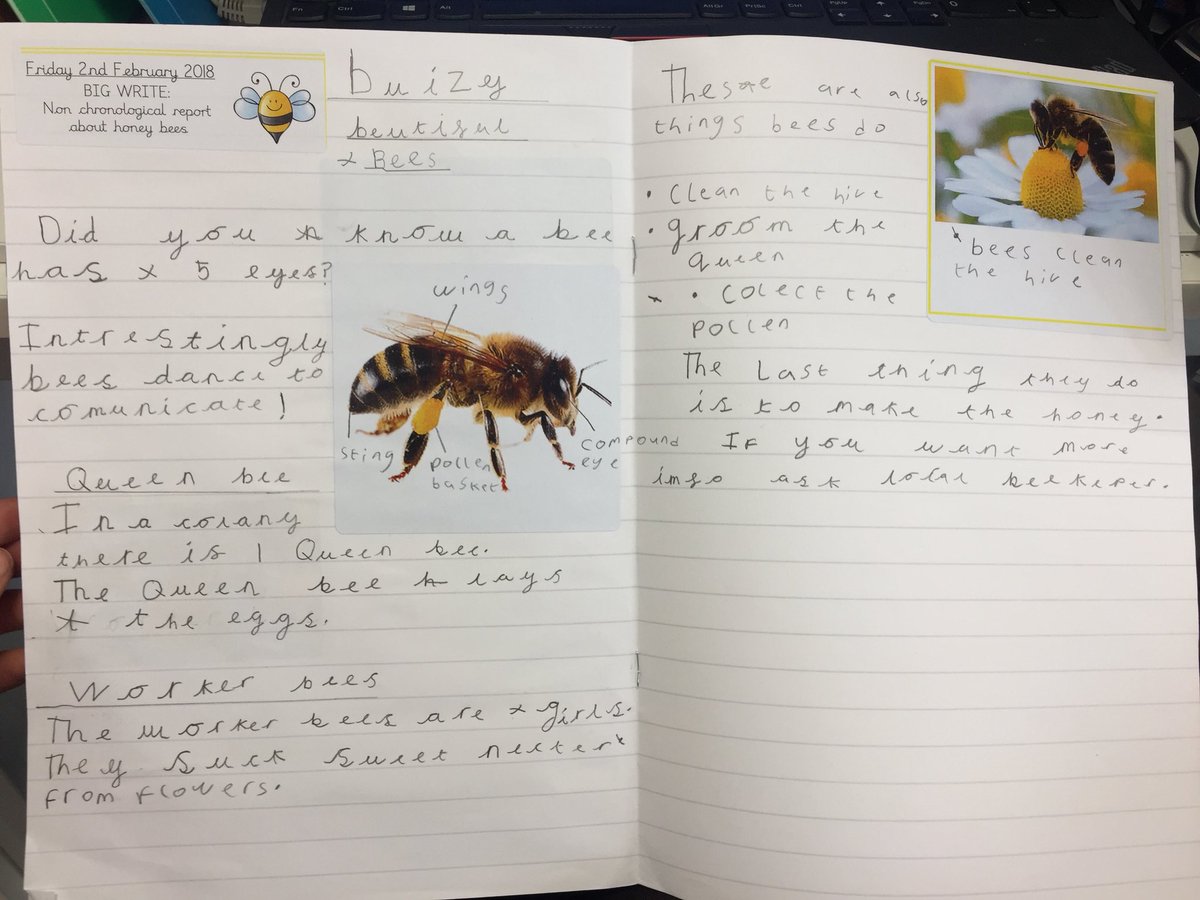 Friday 2nd February 2018
BIG WRITE:
Non chronological report
about honey bees
buizy
beutiful
Bees
Did you know a bee
has 5 eyes?
Intrestingly
bees dance to
comunicate!
wings
sting
pollen
basket
compound
eye
Queen bee
In a colany
there is 1 Queen bee.
The Queen bee lays
the eggs.
Worker bees
The worker bees are girls.
They suck sweet necter
from flowers.
These are also
things bees do
• Clean the hive
• groom the
queen
• colect the
pollen
The Last thing they do
is to make the honey.
If you want more
imfo ask local beekeper.
bees clean
the hive